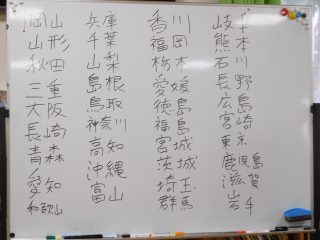 岡山
山形
秋田
三重
大阪
長崎
青森
愛知
和歌山
兵庫
千葉
山梨
島根
鳥取
神奈川
高知
沖縄
富山
香川
福岡
栃木
愛媛
徳島
福島
宮城
茨城
埼玉
群馬
岐阜
熊本
石川
長野
広島
宮崎
東京
鹿児島
滋賀
岩手